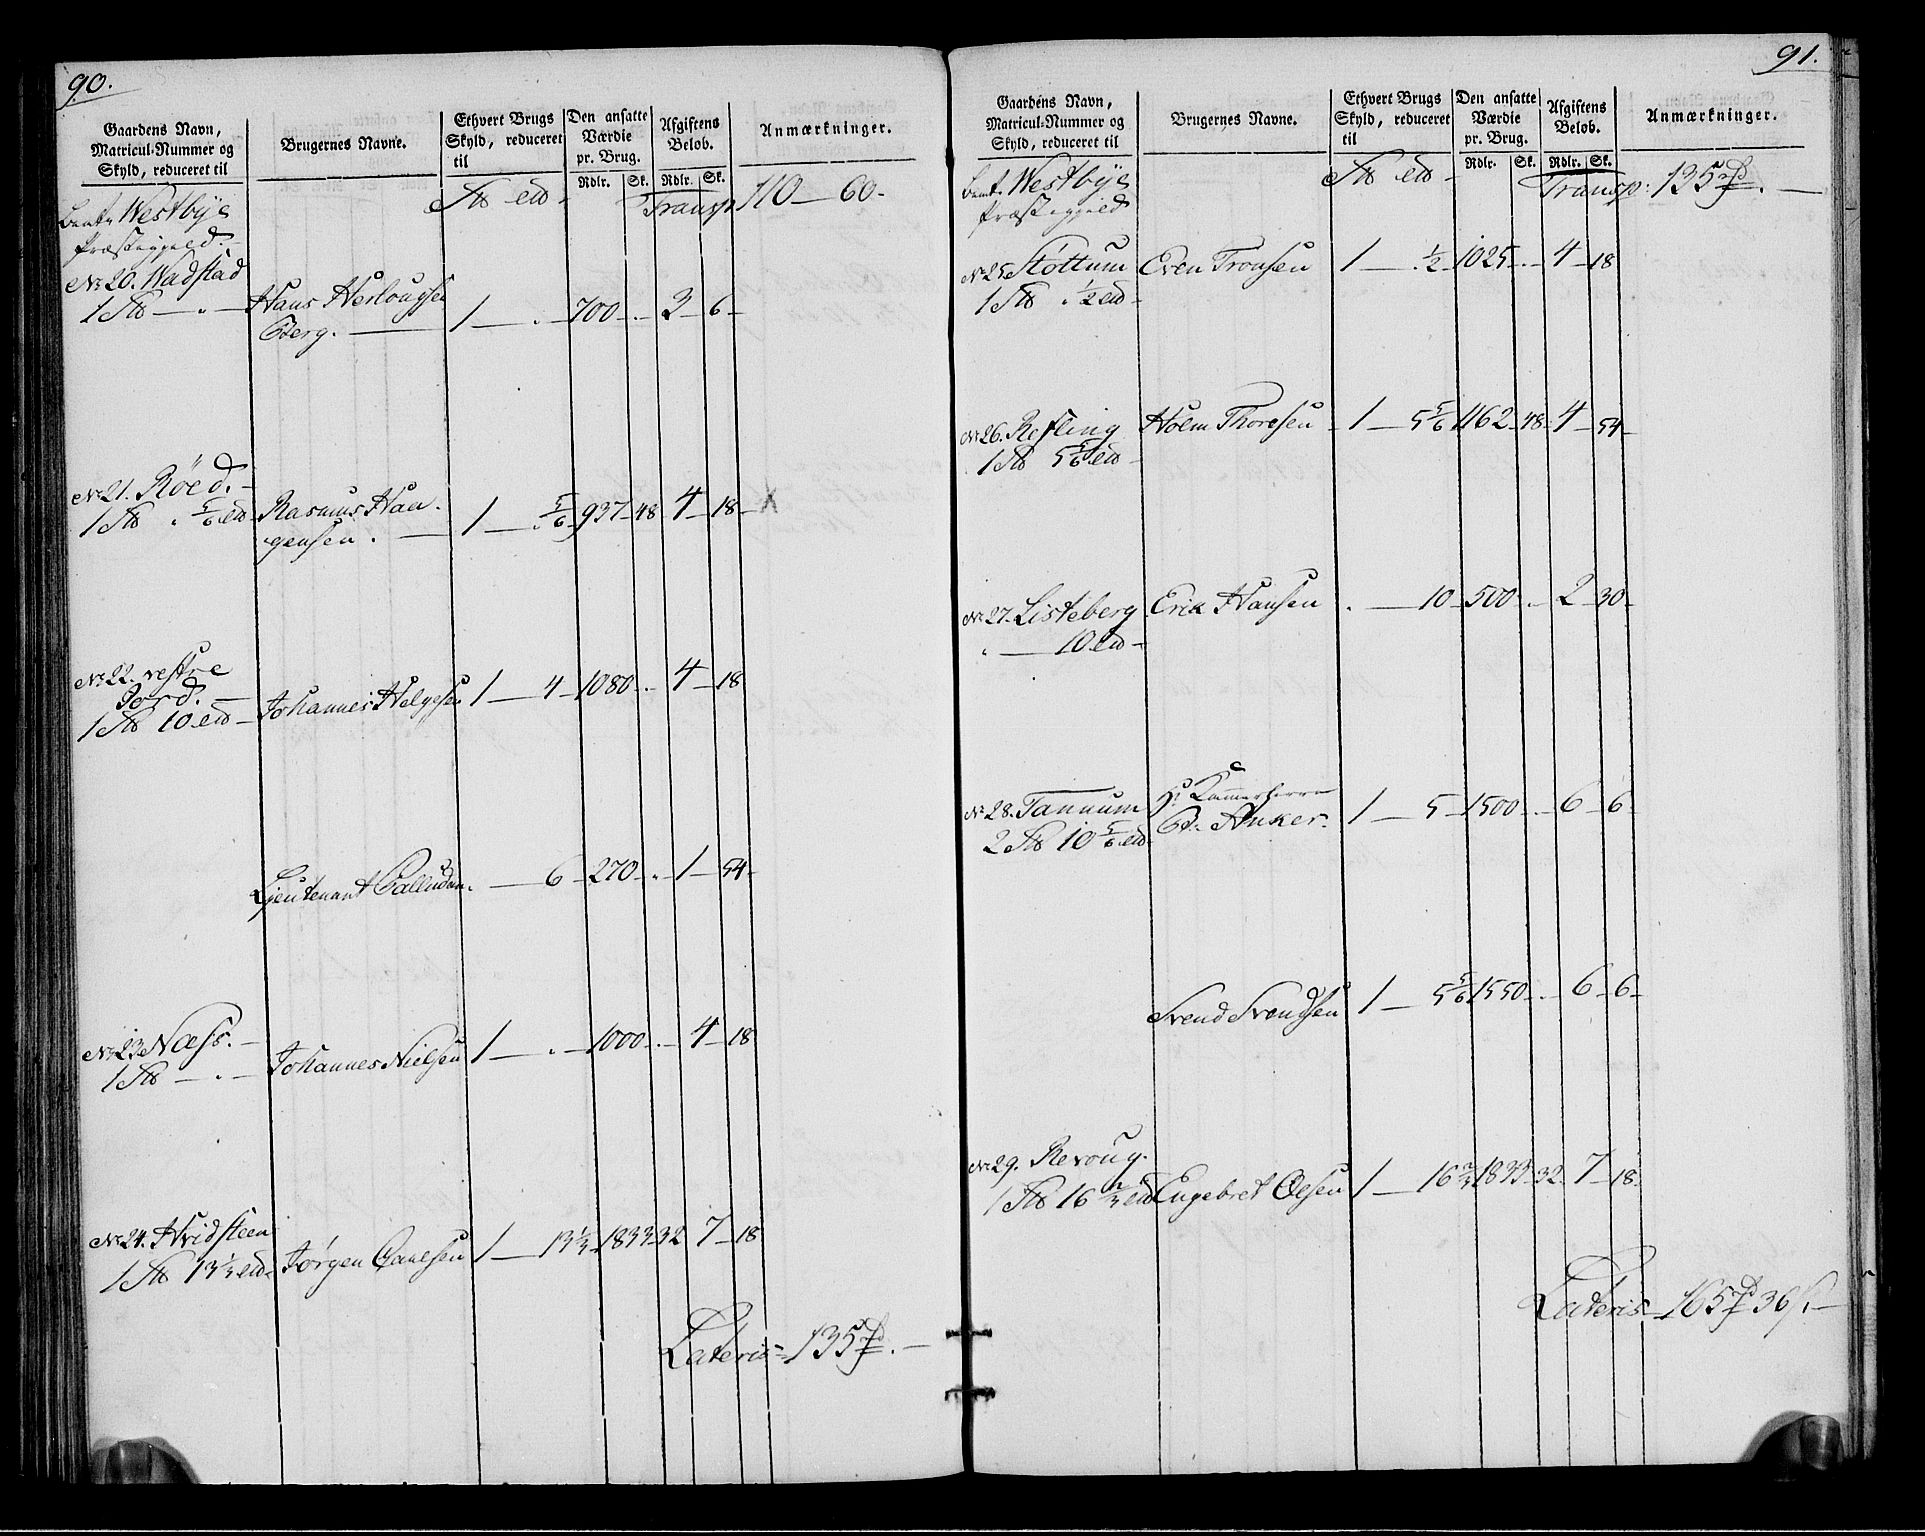 90.
Gaardens Navn, Matricul-Nummer og Skyld, reduceret til
Brugernes Navne.
Ethvert Brugs Skyld, reduceret til
Den ansatte Værdie pr. Brug.
Afgiftens Beløb.
Anmærkninger.
Rdlr. Sk. Rdlr. Sk.
Westbÿe
Præstegield.
Transp 110 — 60 -
No 20. Wadstad
Hans Herlougsen
1 — . — 700 - . - 3 - 6 -
Berg. —
No 21. Röed. -
1 . 5/6
Rasmus Haa-
gensen. —
1 — . 5/6 - 937 - 48 4 - 18 - X
No 22. vestre
Jord. —
1 10
Johannes Helgesen
1 — 4 - 1080 - . - 4 - 18
Lieutenant Palludan. — 6 - 270 - . - 1 - 54 -
No 23 Næss. -
1 — . —
Johannes Nielsen
1 — . — 1000 - . - 4 - 18
No 24. Hvidsteen
1 13 1/3
Jörgen Paulsen
1 — 13 1/3 - 1833 - 32 7 - 18
Lateris - 135 . —
91.
Gaardens Navn, Matricul-Nummer og Skyld, reduceret til
Brugernes Navne.
Ethvert Brugs Skyld, reduceret til
Den ansatte Værdie pr. Brug.
Afgiftens Beløb.
Anmærkninger.
Rdlr. Sk. Rdlr. Sk.
Westbÿe
Præstegield
Transp: 135 . —
No 25 Stöttum
1 . 1/2
Even Tronsen
1 — . 1/2 - 1025 - . - 4 - 18
No 26. Refling
1 5 5/6
Holm Thoresen
1 — 5 5/6 1162 - 48 - 4 - 54 -
No 27. Listeberg
. — 10
Erik Hansen
. — 10 - 500 - . - 2 - 30 -
No 28. Tannum
2 10 5/6
Hr Kammerherre
B. Anker.
1 — 5 - 1500 - . - 6 - 6 -
Svend Svendsen
1 — 5 5/6 1550 - . - 6 - 6 -
No 29. Revoug.
1 16 2/3
Engebret Olsen
1 — 16 2/3 1833 - 32 - 7 - 18 -
Lateris - 165 36 s. —